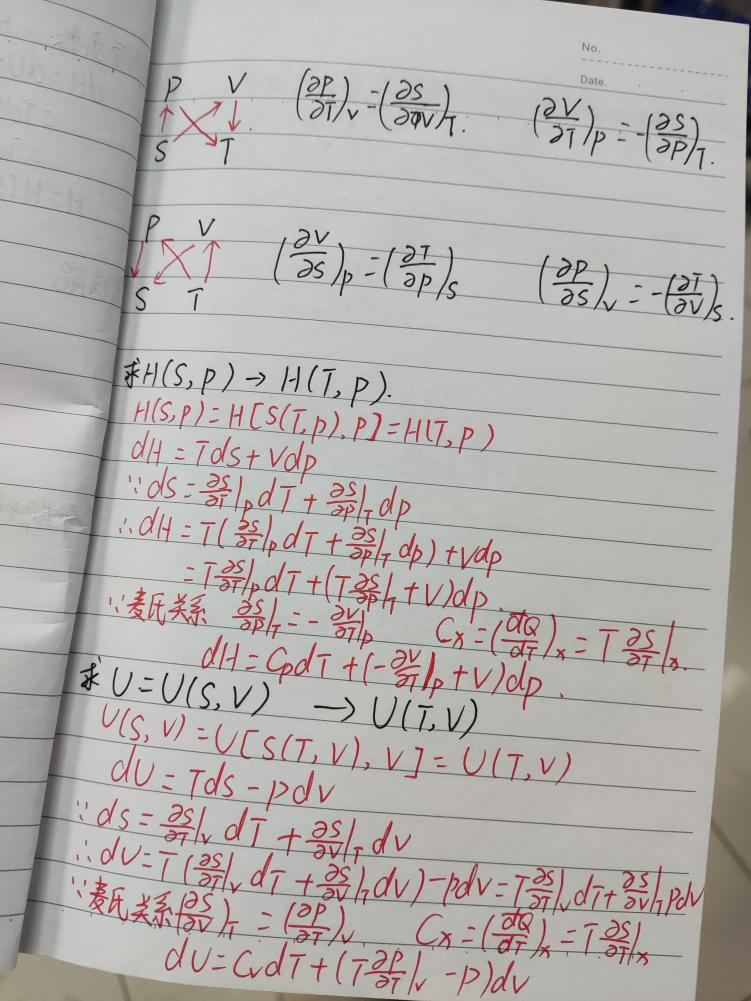 No.
Date.
P V (∂P/∂T)_V = (∂S/∂V)_T. (∂V/∂T)_P = -(∂S/∂P)_T.
S T
P V (∂V/∂S)_P = (∂T/∂P)_S (∂P/∂S)_V = -(∂T/∂V)_S.
S T
求H(S,P) → H(T,P).
H(S,P)=H[S(T,P),P]=H(T,P)
dH=Tds+Vdp
∵ds=∂S/∂T|_P dT+∂S/∂P|_T dp
∴dH=T(∂S/∂T|_P dT+∂S/∂P|_T dp)+Vdp
=T∂S/∂T|_P dT+(T∂S/∂P|_T+V)dp.
∵麦氏关系 ∂S/∂P|_T=-∂V/∂T|_P C_x=(dQ/dT)_x=T∂S/∂T|_x.
dH=C_PdT+(-∂V/∂T|_P+V)dp.
求U=U(S,V) → U(T,V)
U(S,V)=U[S(T,V),V]=U(T,V)
dU=Tds-pdv
∵ds=∂S/∂T|_V dT+∂S/∂V|_T dv
∴dU=T(∂S/∂T|_V dT+∂S/∂V|_T dv)-pdv=T∂S/∂T|_V dT+∂S/∂V|_T pdv
∵麦氏关系(∂S/∂V)_T=(∂P/∂T)_V C_x=(dQ/dT)_x=T∂S/∂T|_x
dU=C_VdT+(T∂P/∂T|_V-p)dv